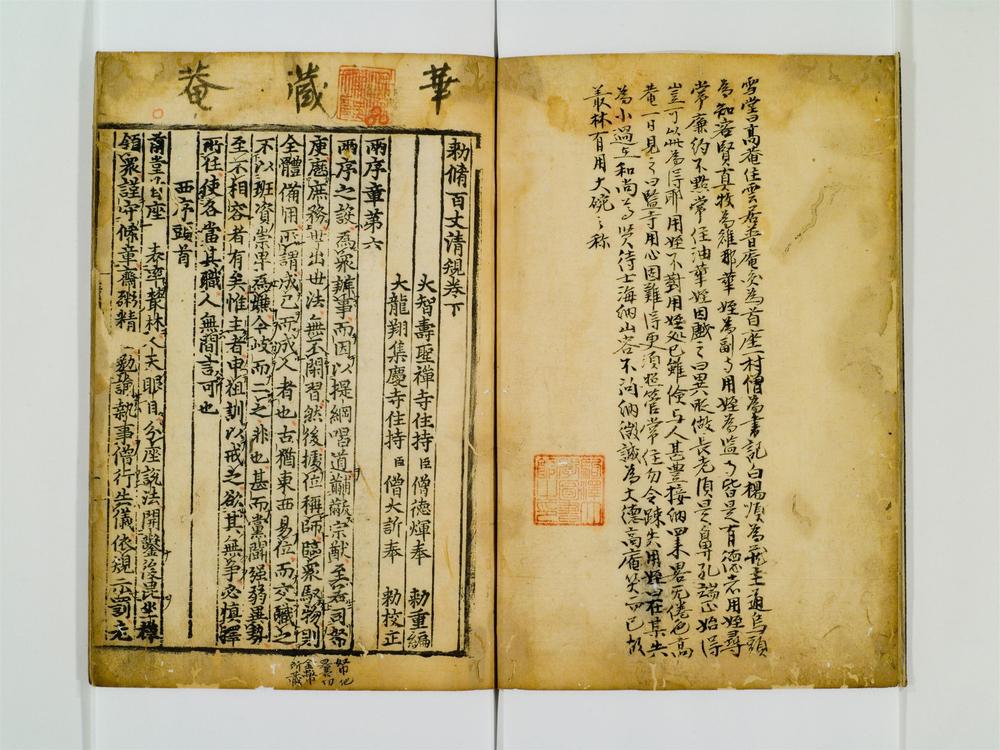 雪堂曰高菴住雲居普庵為首座一村僧為書記白楊順為藏主通烏頭
為知客賢真牧為維那華姪為副寺用姪為監寺皆是有德者用姪尋
常廉約不點常住油華姪因戲之曰異時做長老須是鼻孔端正始得
豈可以此為得耶用姪不對用姪處己雖儉与人甚豊接納四來畧无倦色高
菴一日見之曰監寺用心固難得更須照管常住勿令踈失用姪曰在某失
為小過在和尚尊賢待士海納山容不問細微誠為大德高庵笑而已故
叢林有用大碗之称
華藏菴
勅脩百丈清規卷下
大智壽聖禪寺住持臣僧德煇奉　勅重編
大龍翔集慶寺住持臣僧大訢奉　勅校正
兩序章第六
兩序之設為衆辦事而因以提綱唱道黼黻宗猷至若司帑
庾歷庶務世出世法無不閑習然後據位稱師臨衆馭物則
全體備用所謂成己而成人者也古猶東西易位而交職之
不以班資崇卑為嫌今岐而二之非也甚而黨鬭强弱異勢
至不相容者有矣惟主者申祖訓以戒之欲其無争必慎擇
所任使各當其職人無間言可也
西序頭首
前堂首座　表率叢林人天眼目分座說法開鑿後昆坐禪
領衆謹守條章齋粥精　勉諭執事僧行失儀依規示罰老